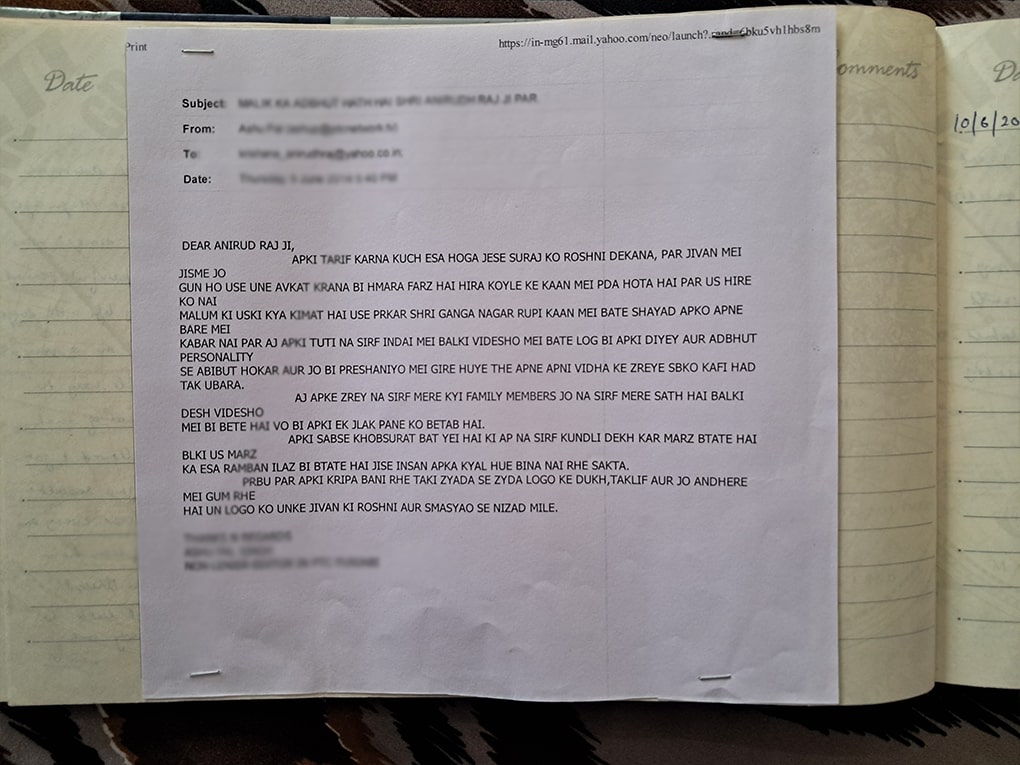 Print
https://in-mg61.mail.yahoo.com/neo/launch?.rand=6bku5vh1hbs8m
Date
omments
Da
10/6/20
Subject: MALIK KA ADBHUT HATH HAI SHRI ANIRUDH RAJ JI PAR
From:
To: @yahoo.co.in
Date: Thursday 5 June 2014 5:40 PM
DEAR ANIRUD RAJ JI,
APKI TARIF KARNA KUCH ESA HOGA JESE SURAJ KO ROSHNI DEKANA, PAR JIVAN MEI
JISME JO
GUN HO USE UNE AVKAT KRANA BI HMARA FARZ HAI HIRA KOYLE KE KAAN MEI PDA HOTA HAI PAR US HIRE
KO NAI
MALUM KI USKI KYA KIMAT HAI USE PRKAR SHRI GANGA NAGAR RUPI KAAN MEI BATE SHAYAD APKO APNE
BARE MEI
KABAR NAI PAR AJ APKI TUTI NA SIRF INDAI MEI BALKI VIDESHO MEI BATE LOG BI APKI DIYEY AUR ADBHUT
PERSONALITY
SE ABIBUT HOKAR AUR JO BI PRESHANIYO MEI GIRE HUYE THE APNE APNI VIDHA KE ZREYE SBKO KAFI HAD
TAK UBARA.
AJ APKE ZREY NA SIRF MERE KYI FAMILY MEMBERS JO NA SIRF MERE SATH HAI BALKI
DESH VIDESHO
MEI BI BETE HAI VO BI APKI EK JLAK PANE KO BETAB HAI.
APKI SABSE KHOBSURAT BAT YEI HAI KI AP NA SIRF KUNDLI DEKH KAR MARZ BTATE HAI
BLKI US MARZ
KA ESA RAMBAN ILAZ BI BTATE HAI JISE INSAN APKA KYAL HUE BINA NAI RHE SAKTA.
PRBU PAR APKI KRIPA BANI RHE TAKI ZYADA SE ZYDA LOGO KE DUKH,TAKLIF AUR JO ANDHERE
MEI GUM RHE
HAI UN LOGO KO UNKE JIVAN KI ROSHNI AUR SMASYAO SE NIZAD MILE.
THANKS N REGARDS